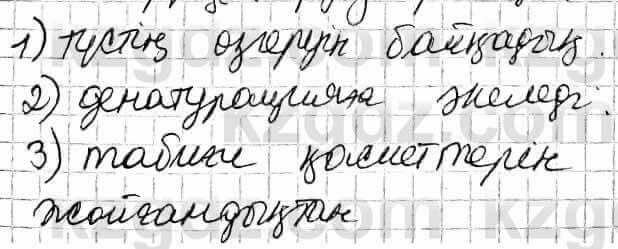 1) түстің өзгеруін байқадық.
2) денатурацияға әкеледі.
3) табиғи қасиеттерін
жойғандықтан